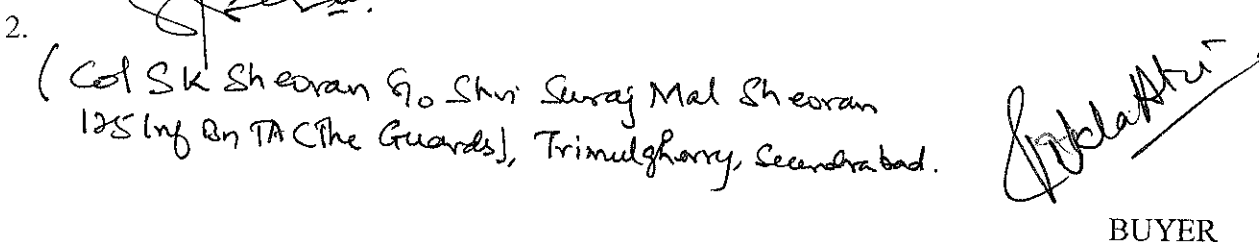 2.
(Col SK Sheoran S/o Shri Suraj Mal Sheoran
125 Inf Bn TA (The Guards), Trimulgherry, Secundrabad.
BUYER